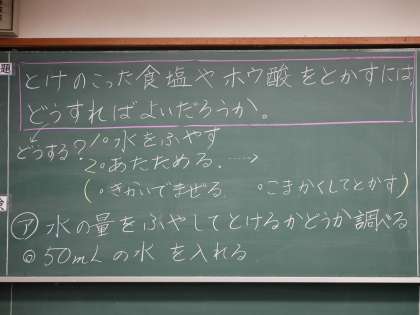 題
とけのこった食塩やホウ酸をとかすには、
どうすればよいだろうか。
どうする? 1°水をふやす
2°あたためる.····>
(°きかいでまぜる °こまかくしてとかす)
㋐ 水の量をふやしてとけるかどうか調べる
◎ 50mLの水を入れる